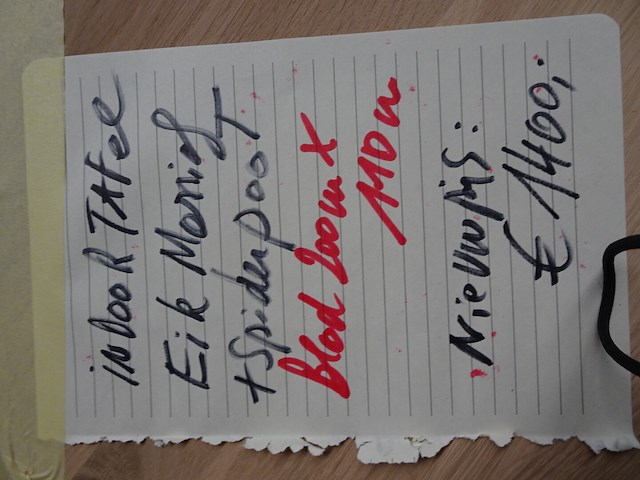 inDOOR TAFEL
Eik Massief
+ Spiderpoot
Blad 200cm X
110cm
Nieuwprijs:
€ 1400,-